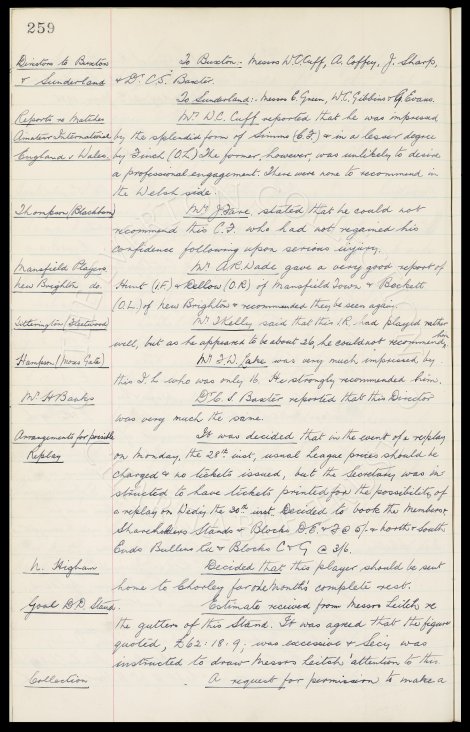 259
Directors to Buxton To Buxton:- Messrs W.C. Cuff, A. Coffey, J. Sharp,
& Sunderland & Dr. C.S. Baxter.
To Sunderland:- Messrs E. Green, W.C. Gibbins & Evans.
Reports re Matches Mr. W.C. Cuff reported that he was impressed
Amateur International by the splendid form of Simms (C.F.) & in a lesser degree
England v Wales. by Finch (O.L.) The former, however, was unlikely to desire
a professional engagement. There were none to recommend in
the Welsh side.
Thompson (Blackburn) Mr. J. Fare, stated that he could not
recommend this C.F. who had not regained his
confidence following upon serious injury.
Mansfield Players Mr. A.R. Dade gave a very good report of
New Brighton do. Hunt (I.F.) & Kellow (O.R.) of Mansfield Town & Beckett
(O.L.) of New Brighton & recommended they be seen again.
Titterington (Fleetwood) Mr. T Kelly said that this I.R. had played rather
well, but as he appeared to be about 26, he could not recommend him
Hampson (Moss Gate) Mr. F.W. Lake was very much impressed by
this I.L. who was only 16. He strongly recommended him.
Mr. H Banks Dr. C.S Baxter reported that this Director
was very much the same.
Arrangements for possible It was decided that in the event of a replay
Replay on Monday, the 28th inst, usual League prices should be
charged & no tickets issued, but the Secretary was in-
structed to have tickets printed for the possibility of
a replay on Wedy the 30th inst. Decided to book the Members &
Shareholders Stands & Blocks D.E. & F @ 5/- & north & South
Ends Bullens Rd & Blocks C & G @ 3/6.
N. Higham Decided that this player should be sent
home to Chorley for one month's complete rest.
Goal D.D. Stand. Estimate received from Messrs Leitch re
the gutters of this Stand. It was agreed that the figure
quoted, £62:18:9; was excessive & Secy was
instructed to draw Messrs Leitch' attention to this
Collection A request for permission to make a